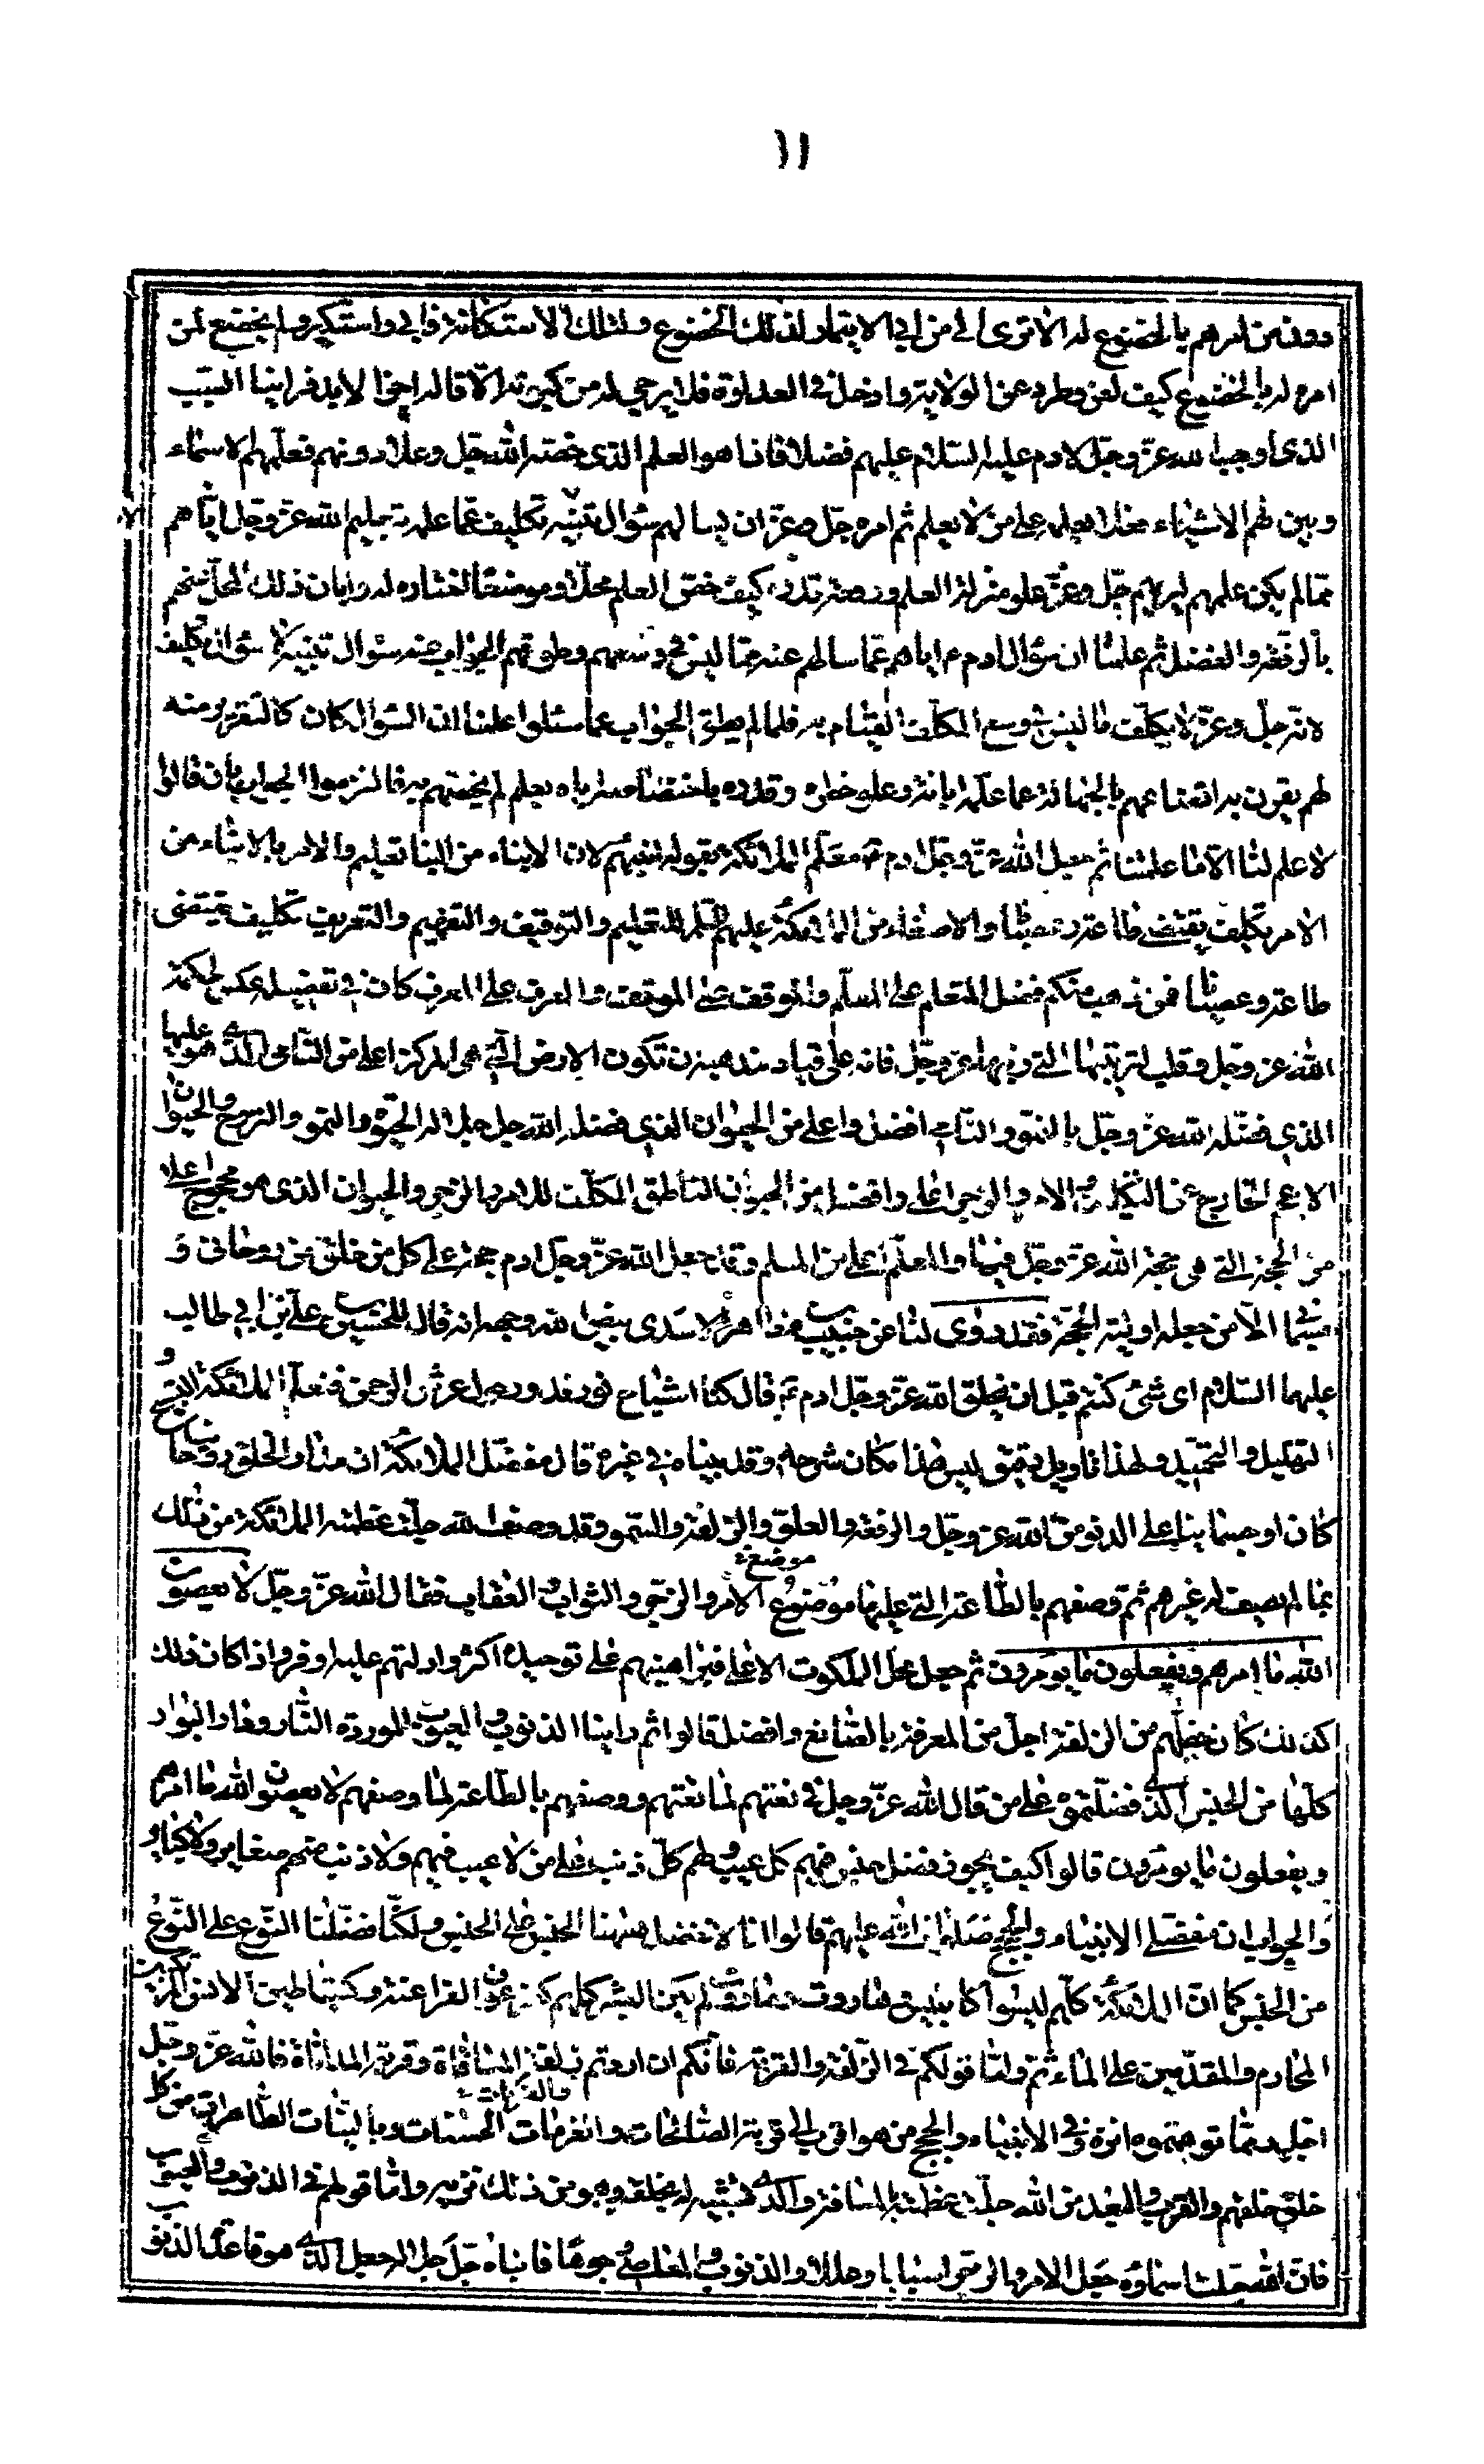 ١١
دونه من امرهم بالخضوع له الا ترى الى من ابى الايتمار لذلك الخضوع ولتلك الاستكانة فابى واستكبر ولم يخضع لمن
امره له بالخضوع كيف لعن وطرد عن الولاية وادخل في العداوة فلا يرجى له من كبوته الاقالة اخر الابد فراينا السبب
الذي اوجب الله عز وجل لادم عليه السلام عليهم فضلا فاذا هو العلم الذي خصه الله جل وعلا دونهم فعلمهم الاسماء
وبين لهم الاشياء فعلا بعلمه على من لا يعلم ثم امره جل وعز ان يسالهم سؤال تنبيه لا سؤال تكليف عما علمه بتعليم الله عز وجل اياهم
مما لم يكن علمهم ليريهم جل وعز علو منزلة العلم ورفعة قدره كيف خص العلم محلا وموضعا اختاره له وابان ذلك المحل عنهم
بالرفعة والفضل ثم علمنا ان سؤال ادم ع اياهم عما سالهم عنه مما ليس في وسعهم وطوقهم الجواب عنه سؤال تنبيه لا سؤال تكليف
لانه جل وعز لا يكلف ما ليس في وسع المكلف القيام به فلما لم يطيقوا الجواب عما سئلوا علمنا ان السؤال كان كالتقرير منه
لهم يقرون به
لا علم لنا الا ما علمتنا ثم جعل الله عز وجل ادم ع معلم الملائكة بقوله انبئهم لان الانباء من النبا تعليم والامر بالانباء من
الامر تكليف يقتضي طاعة وعصيانا والاصغاء من الملائكة عليهم السلم للتعليم والتوقيف والتفهيم والتعريف تكليف يقتضي
طاعة وعصيانا فمن ذهب منكم فضل المتعلم على المعلم والموقف على الموقف والمعرف على المعرف كان في تفضيله عكس لحكمة
الله عز وجل وقلب لترتيبها التي رتبها عز وجل فانه على قياد مذهبه ان تكون الارض التي هي المركز اعلى من النامي الذي هو عليها
الذي فضله الله عز وجل بالنمو والنامي افضل واعلى من الحيوان الذي فضله الله جل جلاله بالحيوة والنمو والروح والحيوان
الاعجم الخارج عن التكليف والامر والزجر اعلى وافضل من الحيوان الناطق المكلف للامر والزجر والحيوان الذي هو محجوج اعلى
من الحجة التي هي حجة الله عز وجل فيها والمعلم اعلى من المعلم وقد جعل الله عز وجل ادم حجة على كل من خلق من روحاني و
جسماني الا من جعل له اولية الحجة فقد روى لنا عن حبيب بن مظاهر الاسدي بيض الله وجهه انه قال للحسين بن علي بن ابي طالب
عليهما السلام اي شيء كنتم قبل ان يخلق الله عز وجل ادم ع قال كنا اشباح نور ندور حول عرش الرحمن فنعلم الملائكة التسبيح و
التهليل والتحميد ولهذا تاويل دقيق ليس هذا مكان شرحه وقد بيناه في غيره قال مفضل الملائكة ان مدار الخلق روحانيا
كان او جسمانيا على الدنو من الله عز وجل والرفعة والعلو والزلفة والسمو وقد وصف الله جلت عظمته الملائكة من ذلك
بما لم يصف به غيرهم ثم وصفهم بالطاعة التي عليها موضوع الامر والزجر والثواب والعقاب فقال الله عز وجل لا يعصون
موضع
الله ما امرهم ويفعلون ما يؤمرون ثم جعل محل الملكوت الاعلى فبراهينهم على توحيده اكثر وادلتهم عليه اوفر واذا كان ذلك
كذلك كان حظهم من الزلفة اجل من المعرفة بالصانع وافضل قالوا ثم راينا الذنوب والعيوب الموردة النار ودار البوار
كلها من الجنس الذي فضلتموه على من قال الله عز وجل في نعتهم لما نعتهم ووصفهم بالطاعة لما وصفهم لا يعصون الله ما امرهم
ويفعلون ما يؤمرون قالوا كيف يجوز فضل جنس فيهم كل عيب ولهم كل ذنب على من لا عيب فيهم ولا ذنب منهم صغاير ولا كباير
والجواب ان مفضلي الانبياء والحجج صلوات الله عليهم قالوا انا لا نفضل ههنا الجنس على الجنس ولكنا فضلنا النوع على النوع
من الجنس كما ان الملائكة كلهم ليسوا كابليس وهاروت وماروت لم يكن البشر كلهم كفرعون الفراعنة وكشياطين الانس المرتكبين
المحارم والمقدمين على الماثم واما قولكم في الزلفة والقربة فانكم ان اردتم زلفة المسافات وقربة المداناة فالله عز وجل
اجل ومما توهمتموه انزه وفي الانبياء والحجج من هو اقرب الى قربه بالصالحات والقربات الحسنات وبالنيات الطاهرات من كل
خلق خلقهم والقرب والبعد من الله جلت عظمته بالمسافة والمدى تشبيه له بخلقه وهو من ذلك نزيه واما قولهم في الذنوب والعيوب
فان الله جلت اسماؤه جعل الامر والزجر اسبابا وعللا والذنوب والمعاصي وجوها فانباء جل جلاله وجعل الذي هو قاعدة الذنوب